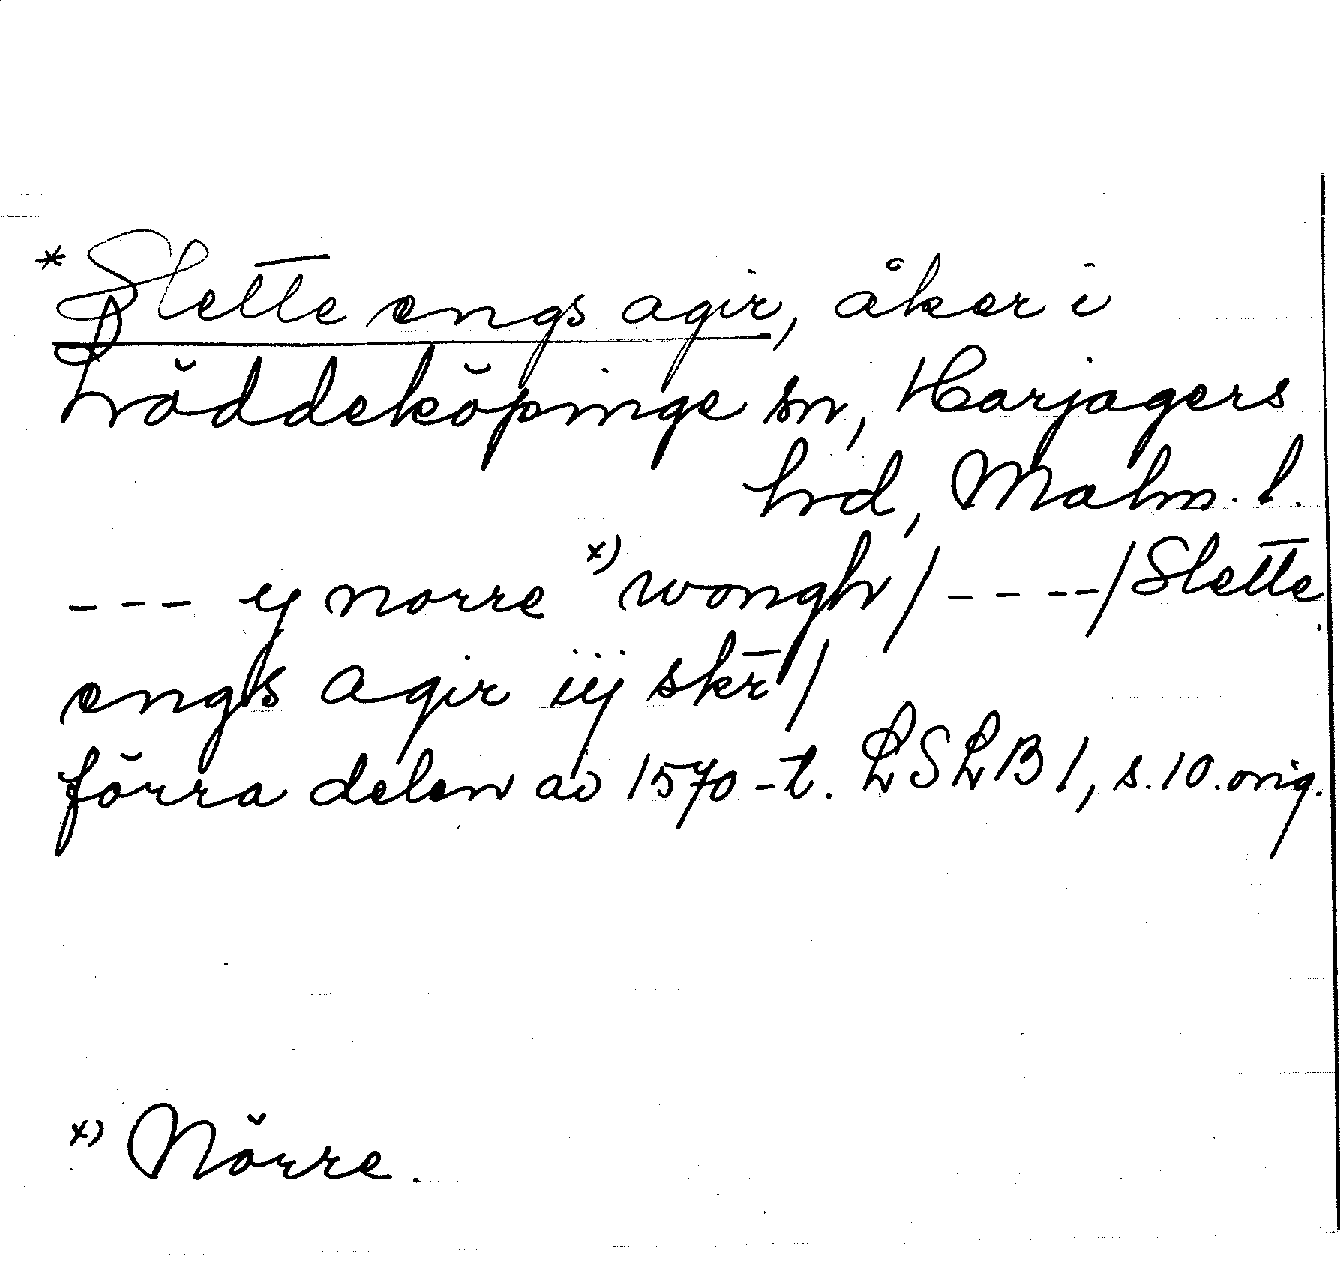 *Slette engs agir, åker i
Löddeköpinge sn, Harjagers
hd, Malm. l.
--- ij norre x) wongh / ---- / Slette
engs agir iij skr /
förra delen av 1570-t. LSLB 1, s. 10. orig.
x) Nörre.